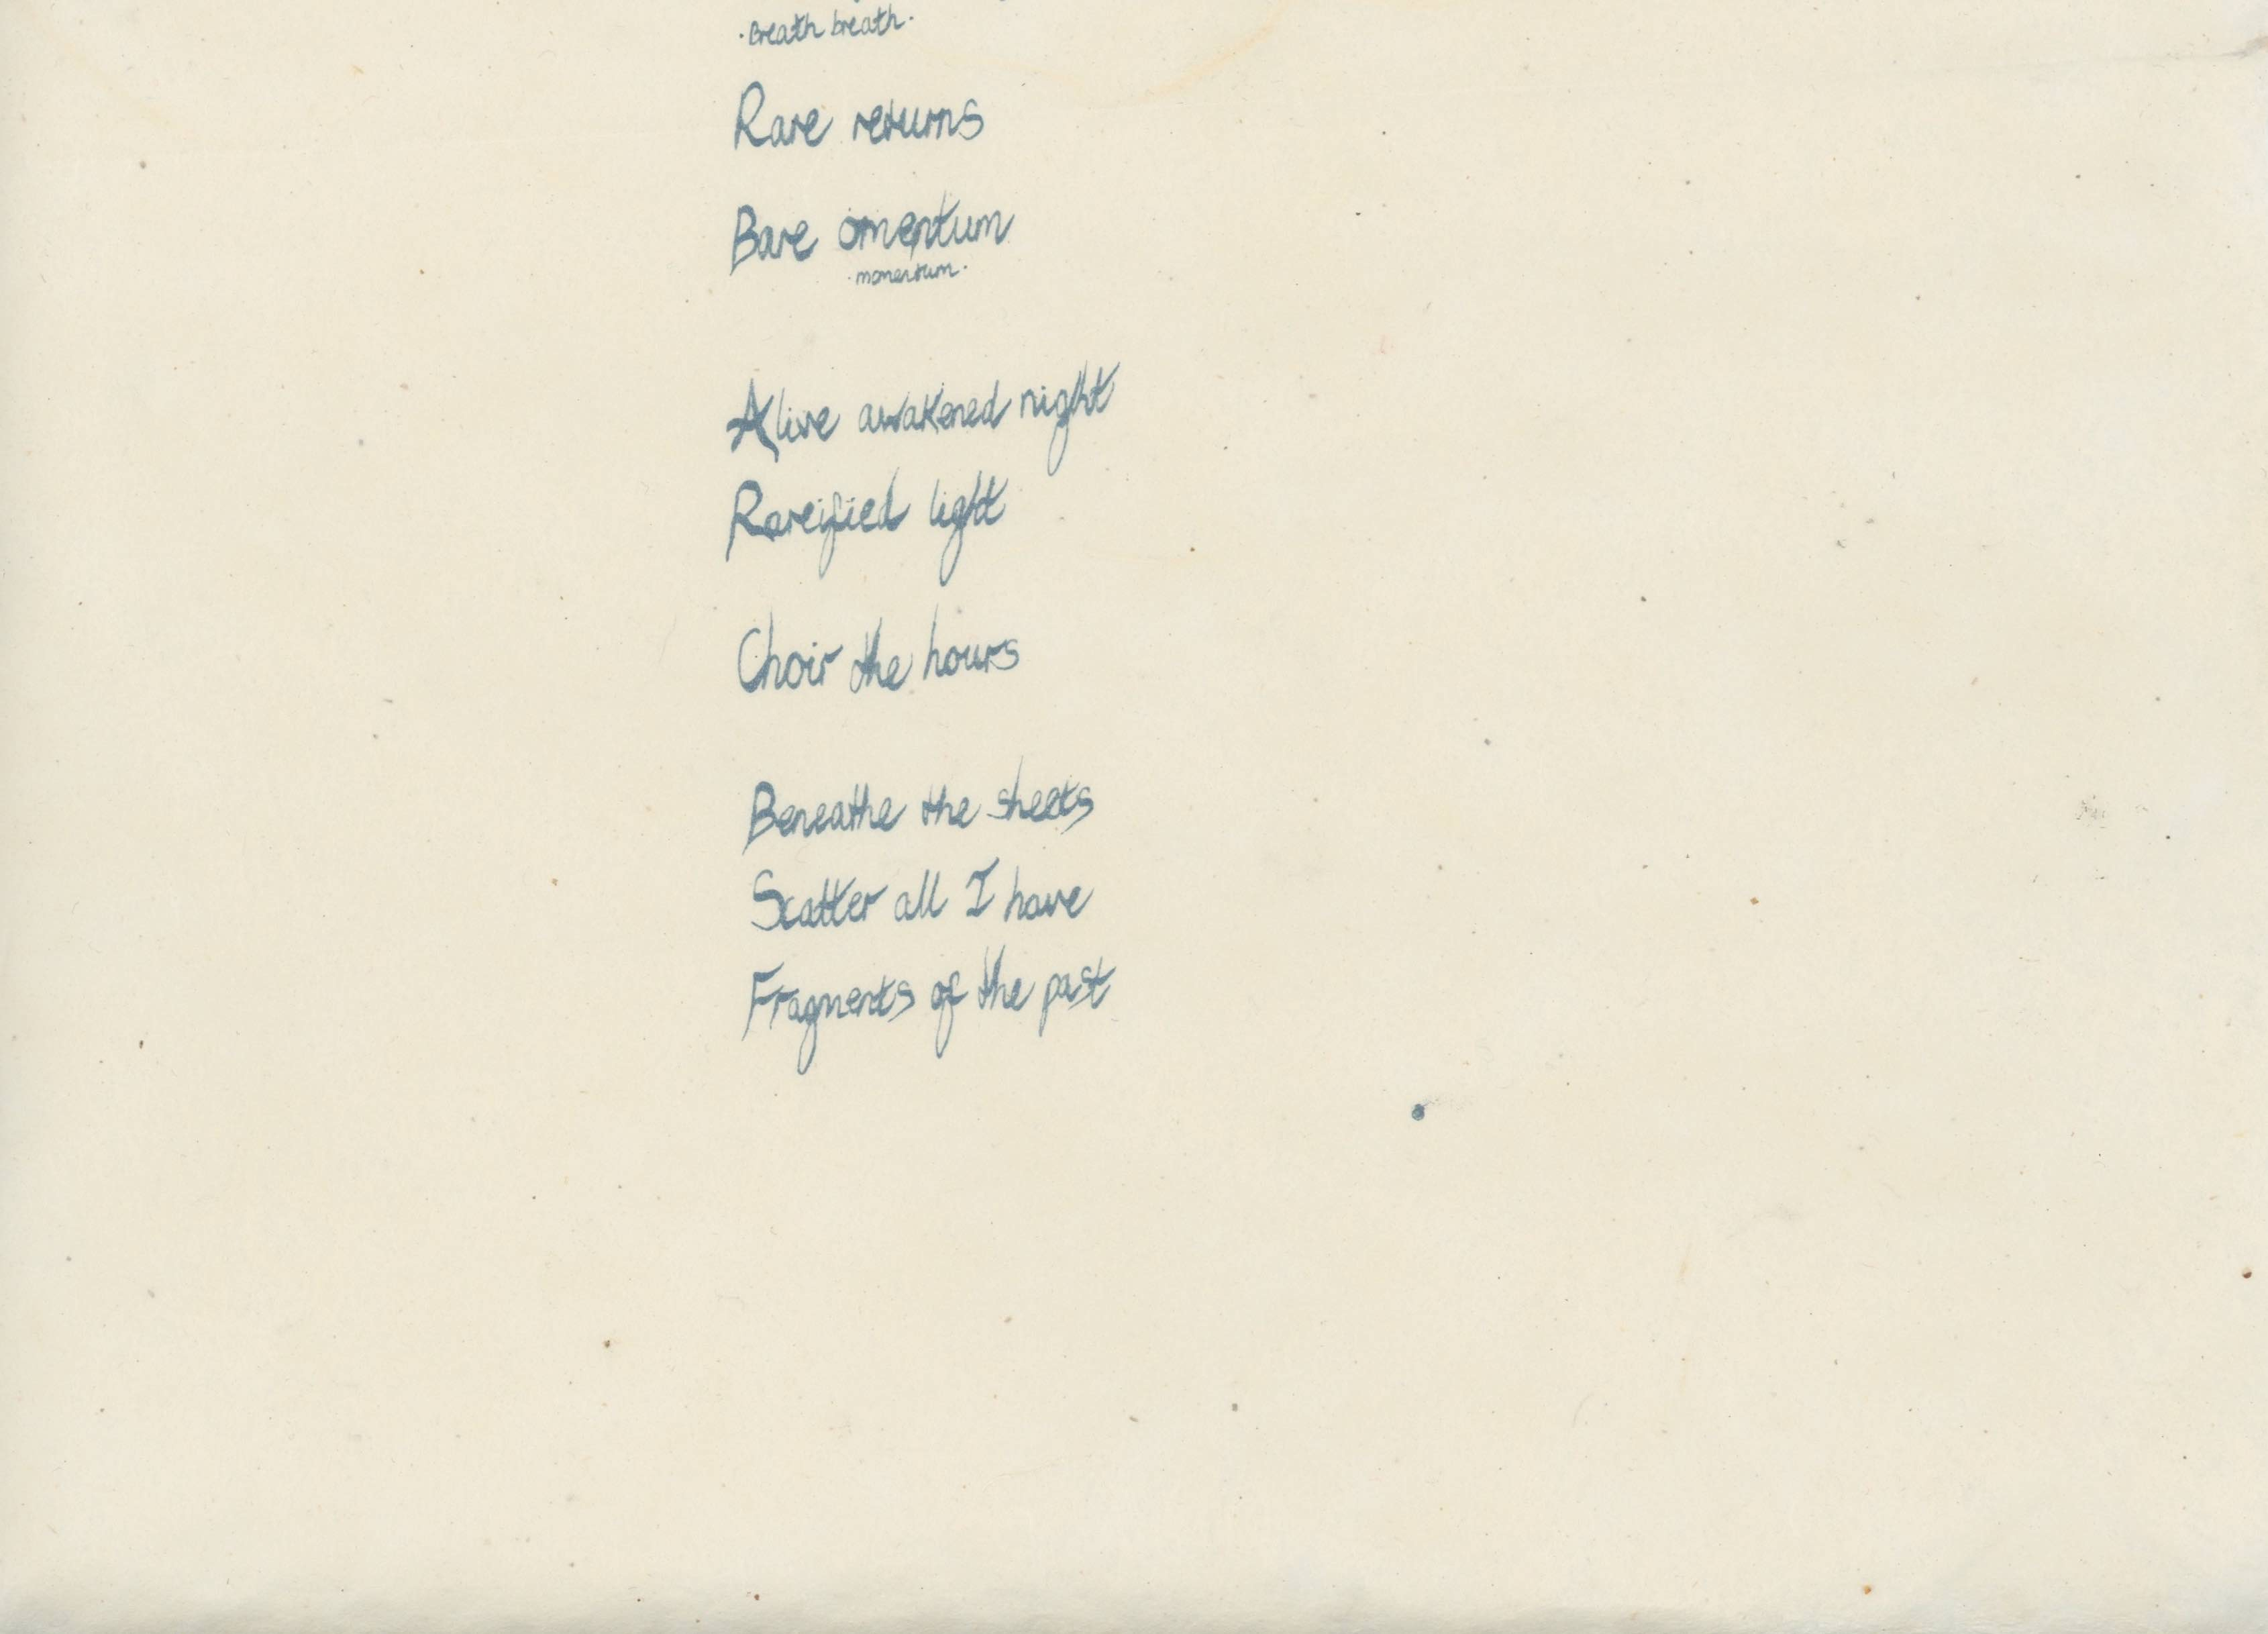 ·Breath breath·
Rare returns
Bare omentum
·momentum·
Alive awakened night
Rareified light
Choir the hours
Beneathe the sheets
Scatter all I have
Fragments of the past